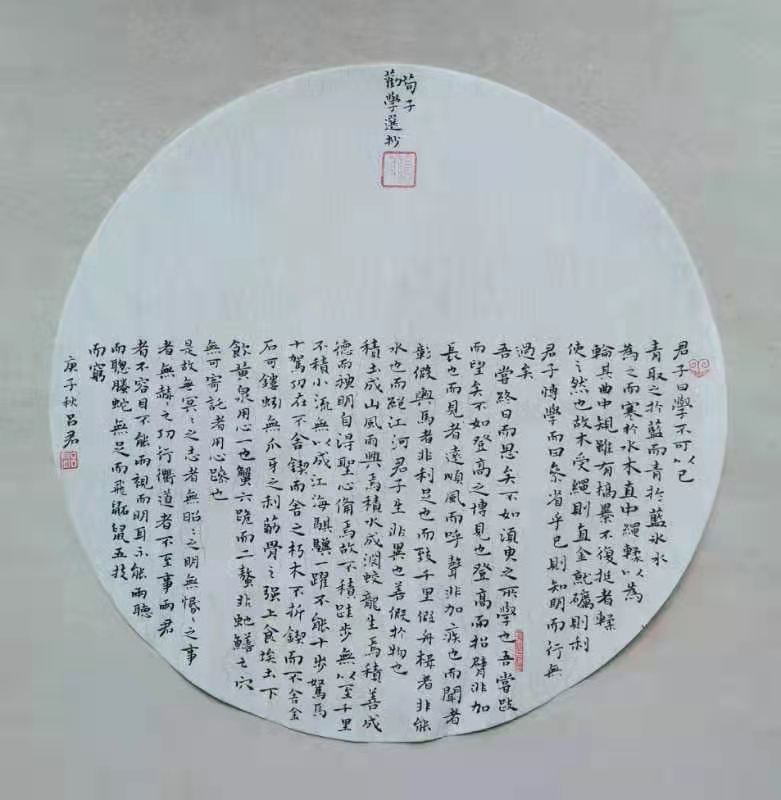 荀子
勸學選抄
君子曰學不可以已
青取之於藍而青於藍氷水
為之而寒於水木直中繩輮以為
輪其曲中規雖有槁暴不復挺者輮
使之然也故木受繩則直金就礪則利
君子博學而日參省乎己則知明而行無
過矣
吾嘗終日而思矣不如須臾之所學也吾嘗跂
而望矣不如登高之博見也登高而招臂非加
長也而見者遠順風而呼聲非加疾也而聞者
彰假輿馬者非利足也而致千里假舟楫者非能
水也而絕江河君子生非異也善假於物也
積土成山風雨興焉積水成淵蛟龍生焉積善成
德而神明自得聖心備焉故不積跬步無以至千里
不積小流無以成江海騏驥一躍不能十步駑馬
十駕功在不舍鍥而舍之朽木不折鍥而不舍金
石可鏤蚓無爪牙之利筋骨之强上食埃土下
飲黃泉用心一也蟹六跪而二螯非虵鱔之穴
無可寄託者用心躁也
是故無冥之之志者無昭之之明無惛之之事
者無赫之之功行衢道者不至事兩君
者不容目不能兩視而明耳不能兩聽
而聰螣蛇無足而飛鼫鼠五技
而窮
庚子秋呂君